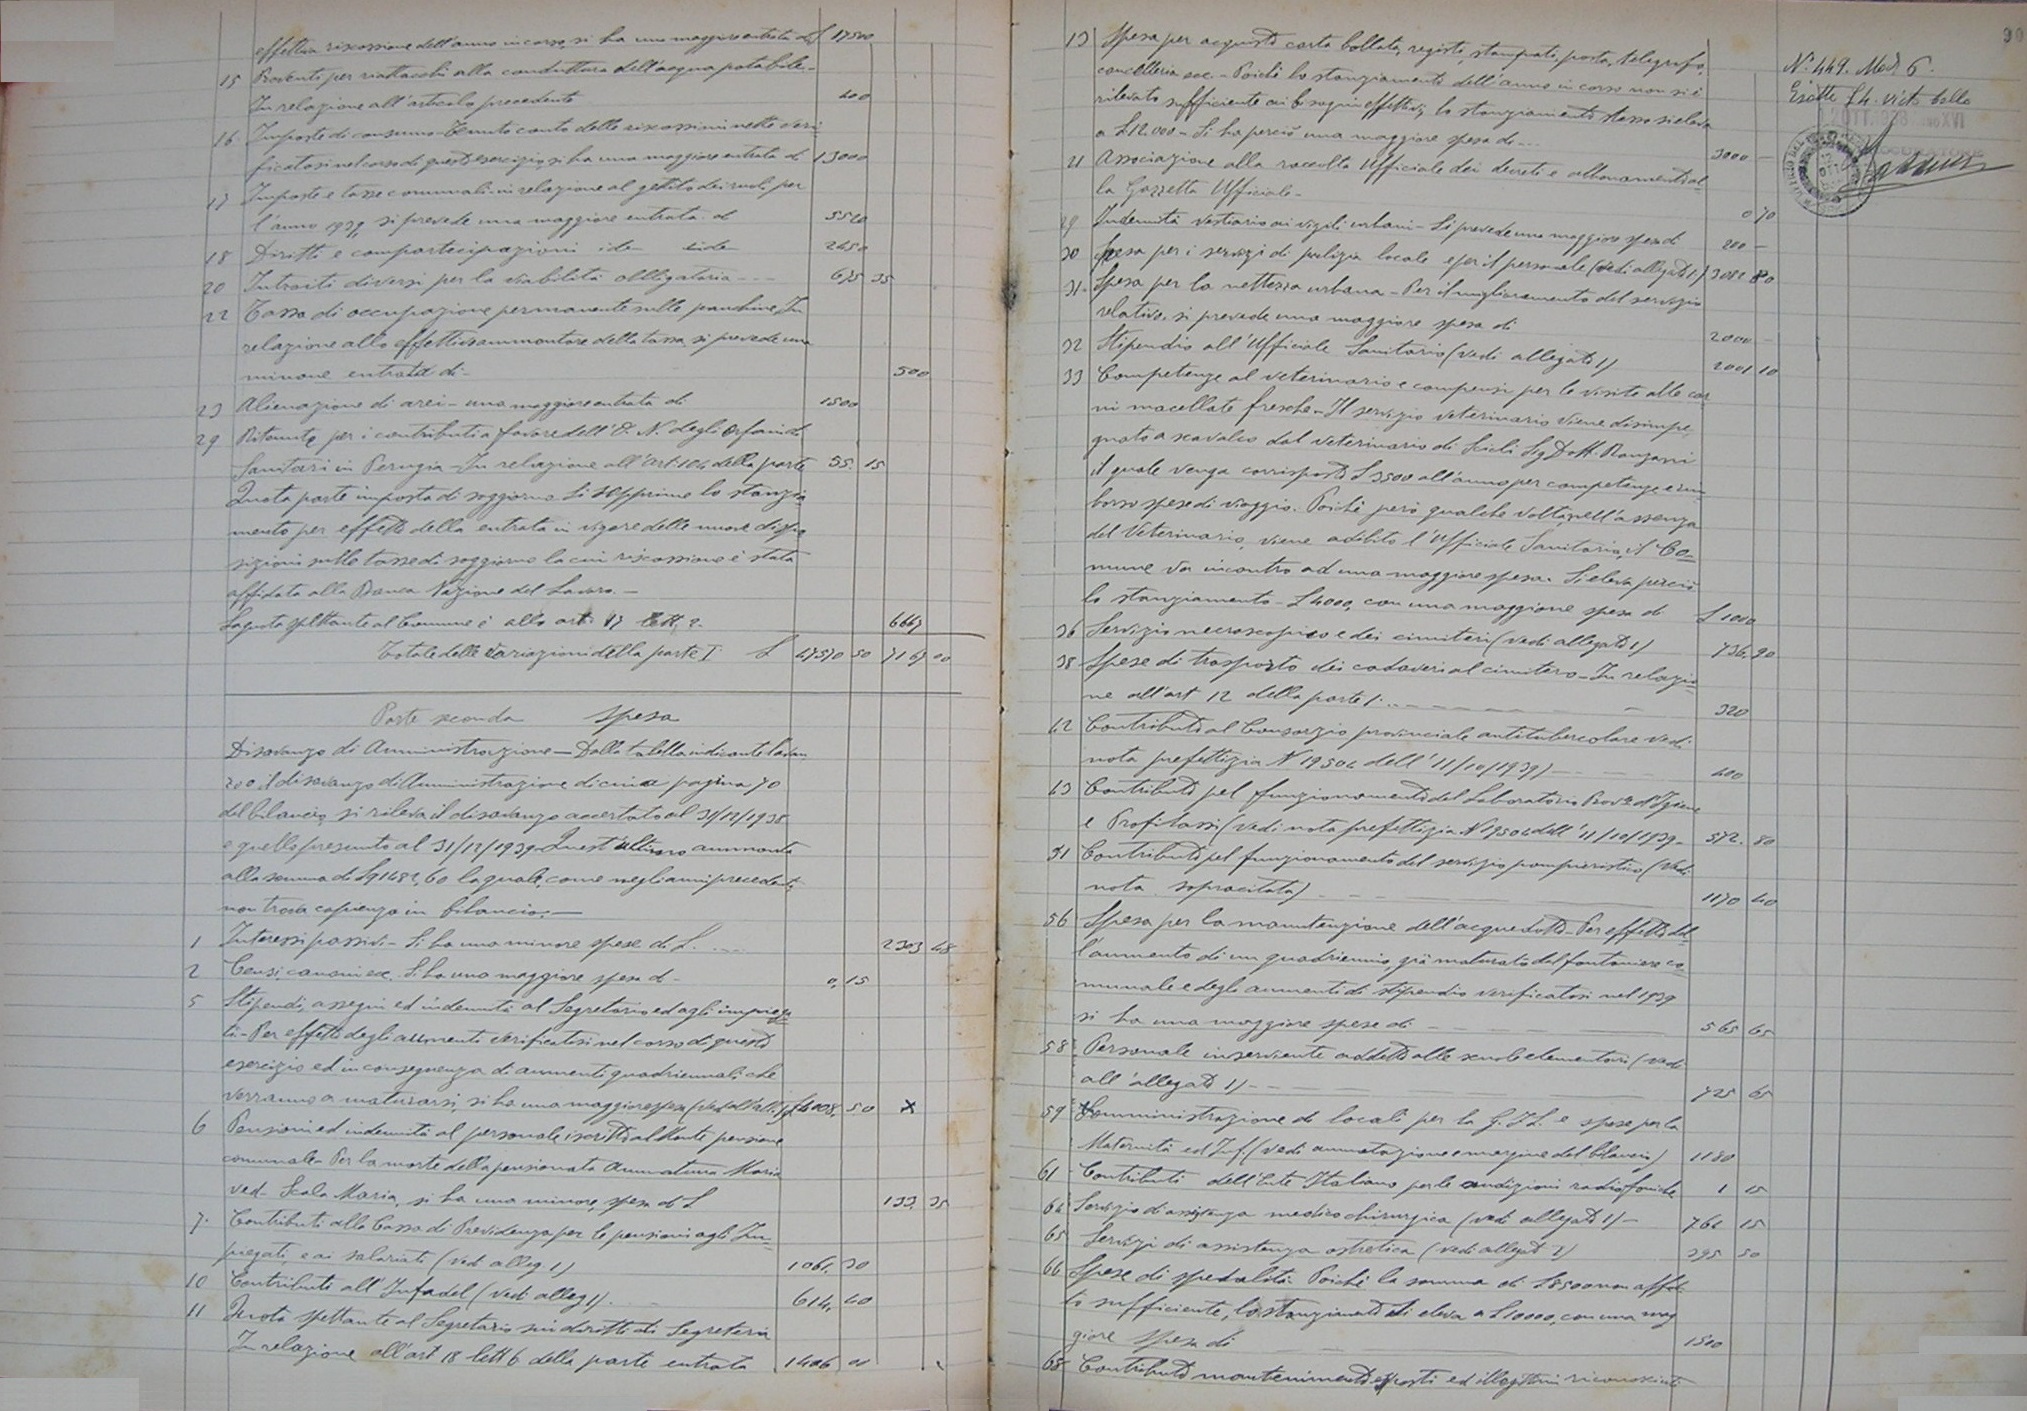 effettiva riscossione dell'anno in corso, si ha una maggiore entrata di £ 17500
15 Proventi per riattacchi alla conduttura dell'acqua potabile-
In relazione all'articolo precedente 400
16 Imposte di consumo - Tenuto conto delle riscossioni nette veri
ficatesi nel corso di questo esercizio, si ha una maggiore entrata di 13000
17 Imposte e tasse comunali: in relazione al gettito dei ruoli per
l'anno 1939, si prevede una maggiore entrata di 5520
18 Diritti e compartecipazioni ide- ide 2450
20 Introiti diversi per la viabilità obbligatoria --- 675 35
22 Tassa di occupazione permanente sulle panchine. In
relazione allo effettivo ammontare della tassa si prevede una
minore entrata di- 500
23 Alienazione di arei - una maggiore entrata di 1500
29 Ritenute per i contributi a favore dell'O. N. degli Orfani di
Sanitari in Perugia - In relazione all'art. 104 della parte 55. 15
Quota parte imposta di soggiorno. Si sopprime lo stanzia
mento per effetto della entrata in vigore delle nuove dispo
sizioni sulle tasse di soggiorno la cui riscossione è stata
affidata alla Banca Nazione del Lavoro. -
La quota spettante al Comune è allo art. 17 lett. 2. 6667
Totale delle variazioni della parte I £ 47570 50 7167 00
Parte seconda Spesa
Disavanzo di Amministrazione - Dalla tabella indicante l'avan
zo o il disavanzo di Amministrazione di cui a pagina 70
del bilancio, si rileva il disavanzo accertato al 31/12/1938
e quello presunto al 31/12/1939. Quest'ultimo ammonta
alla somma di £ 91482,60 la quale, come negli anni precedenti,
non trova capienza in bilancio. -
1 Interessi passivi - Si ha una minore spesa di £. 2303 48
2 Censi, canoni ec. Si ha una maggiore spesa di - 0, 15
5 Stipendi, assegni ed indennità al Segretario ed agli impiega
ti - Per effetto degli aumenti verificatisi nel corso di questo
esercizio ed in conseguenza di aumenti quadriennali che
verranno a maturarsi, si ha una maggiore spesa (vedi all'all. 1) £ 4008, 50 x
6 Pensioni ed indennità al personale iscritto al Monte pensione
comunale - Per la morte della pensionata Ammatuna Maria
ved. Scala Maria, si ha una minore spesa di £ 133, 35
7. Contributi alla Cassa di Previdenza per le pensioni agli Im-
piegati e ai salariati (vedi alleg. 1) 1061, 30
10 Contributi all'Infadel (vedi alleg 1). 614, 40
11 Quota spettante al Segretario sui diritti di Segreteria
In relazione all'art 18 lett b della parte entrata 1406 01
90
13 Spesa per acquisto carta bollata, registri, stampati, posta, telegrafo,
cancelleria ecc. - Poichè lo stanziamento dell'anno in corso non si è
rilevato sufficiente ai bisogni effettivi, lo stanziamento stesso si eleva
a £ 12.000 - Si ha perciò una maggiore spesa di --- 3000 -
21 Associazione alla raccolta Ufficiale dei decreti e abbonamento al
la Gazzetta Ufficiale - 0 70
29 Indennità vestiario ai vigili urbani - Si prevede una maggiore spesa di 200 -
30 Spesa per i servizi di polizia locale e per il personale (vedi allegato 1.) 3082 80
31. Spesa per la nettezza urbana - Per il miglioramento del servizio
relativo, si prevede una maggiore spesa di 2000 -
32 Stipendio all'Ufficiale Sanitario (vedi allegato 1) 2001 10
33 Competenze al veterinario e compensi per le visite alle car
ni macellate fresche - Il servizio veterinario viene disimpe
gnato a scavalco dal veterinario di Scicli Sig Dott.
il quale venga corrisposto £ 3500 all'anno per competenze e rim-
borso spese di viaggio. Poichè però qualche volta, nell'assenza
del Veterinario, viene adibito l'Ufficiale Sanitario, il Co-
mune va incontro ad una maggiore spesa. Si eleva perciò
lo stanziamento - £ 4000, con una maggiore spesa di £ 1000
36 Servizio necroscopico e dei cimiteri (vedi allegato 1) 736. 90
38 Spese di trasporto dei cadaveri al cimitero - In relazio
ne all'art 12 della parte 1. - 320
42 Contributo al Consorzio provinciale antitubercolare vedi
nota prefettizia N 19504 dell'11/10/1939) - 400
43 Contributo pel funzionamento del Laboratorio Prov.le d'Igiene
e Profilassi (vedi nota prefettizia N 19504 dell'11/10/1939 - 572. 80
51 Contributo pel funzionamento del servizio pompieristico (vedi
nota sopracitata) 1170 40
56 Spesa per la manutenzione dell'acquedotto - Per effetto del
l'aumento di un quadriennio, già maturato dal fontaniere co
munale e degli aumenti di stipendio verificatosi nel 1939
si ha una maggiore spese di 565 65
58 Personale inserviente addetto alle scuole elementari (vedi
all'allegato 1) - 725 65
59 Somministrazione di locali per la G.I.L. e spese per la
Maternità ed Inf. (vedi annotazione a margine del bilancio) 1180
61 Contributi dell'Ente Italiano per le audizioni radiofoniche 1 15
64 Servizio di assistenza medico chirurgica (vedi allegato 1) - 761 15
65 Servizi di assistenza ostetrica (vedi allegato 1) 295 50
66 Spese di spedalità. Poichè la somma di £ 8500 non appa
to sufficiente, lo stanziamento si eleva a £ 10000, con una mag
giore spesa di 1500
68 Contributo mantenimento esposti ed illegittimi riconosciuti
N. 449. Mod 6.
Esatte £ 4. visto bollo
OTT. 1938 ANNO XVI